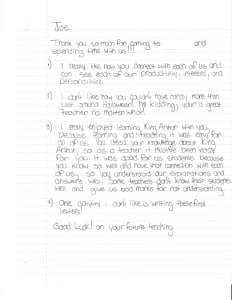 Joe,
Thank you so much for coming to and
spending time with us!!!
1) I really like how you connect with each of us and
can see each of our productivity, interests, and
personalities.
2) I don't like how you couldn't have candy more then
just around Halloween! No kidding, your a great
teacher no matter what!
3) I really enjoyed learning King Arthur with you,
because learning and teaching it was easy for
all of us. You used your knowledge about King
Arthur, so as a teacher it must've been easy
for you. It was good for us students because
you know us well and have that connection with each
of us, so you understood our expectations and
answers well. Some teachers don't know their students
well and give us bad marks for not understanding.
4) One I don't like is writing these
letters!
Good Luck! on your future teaching